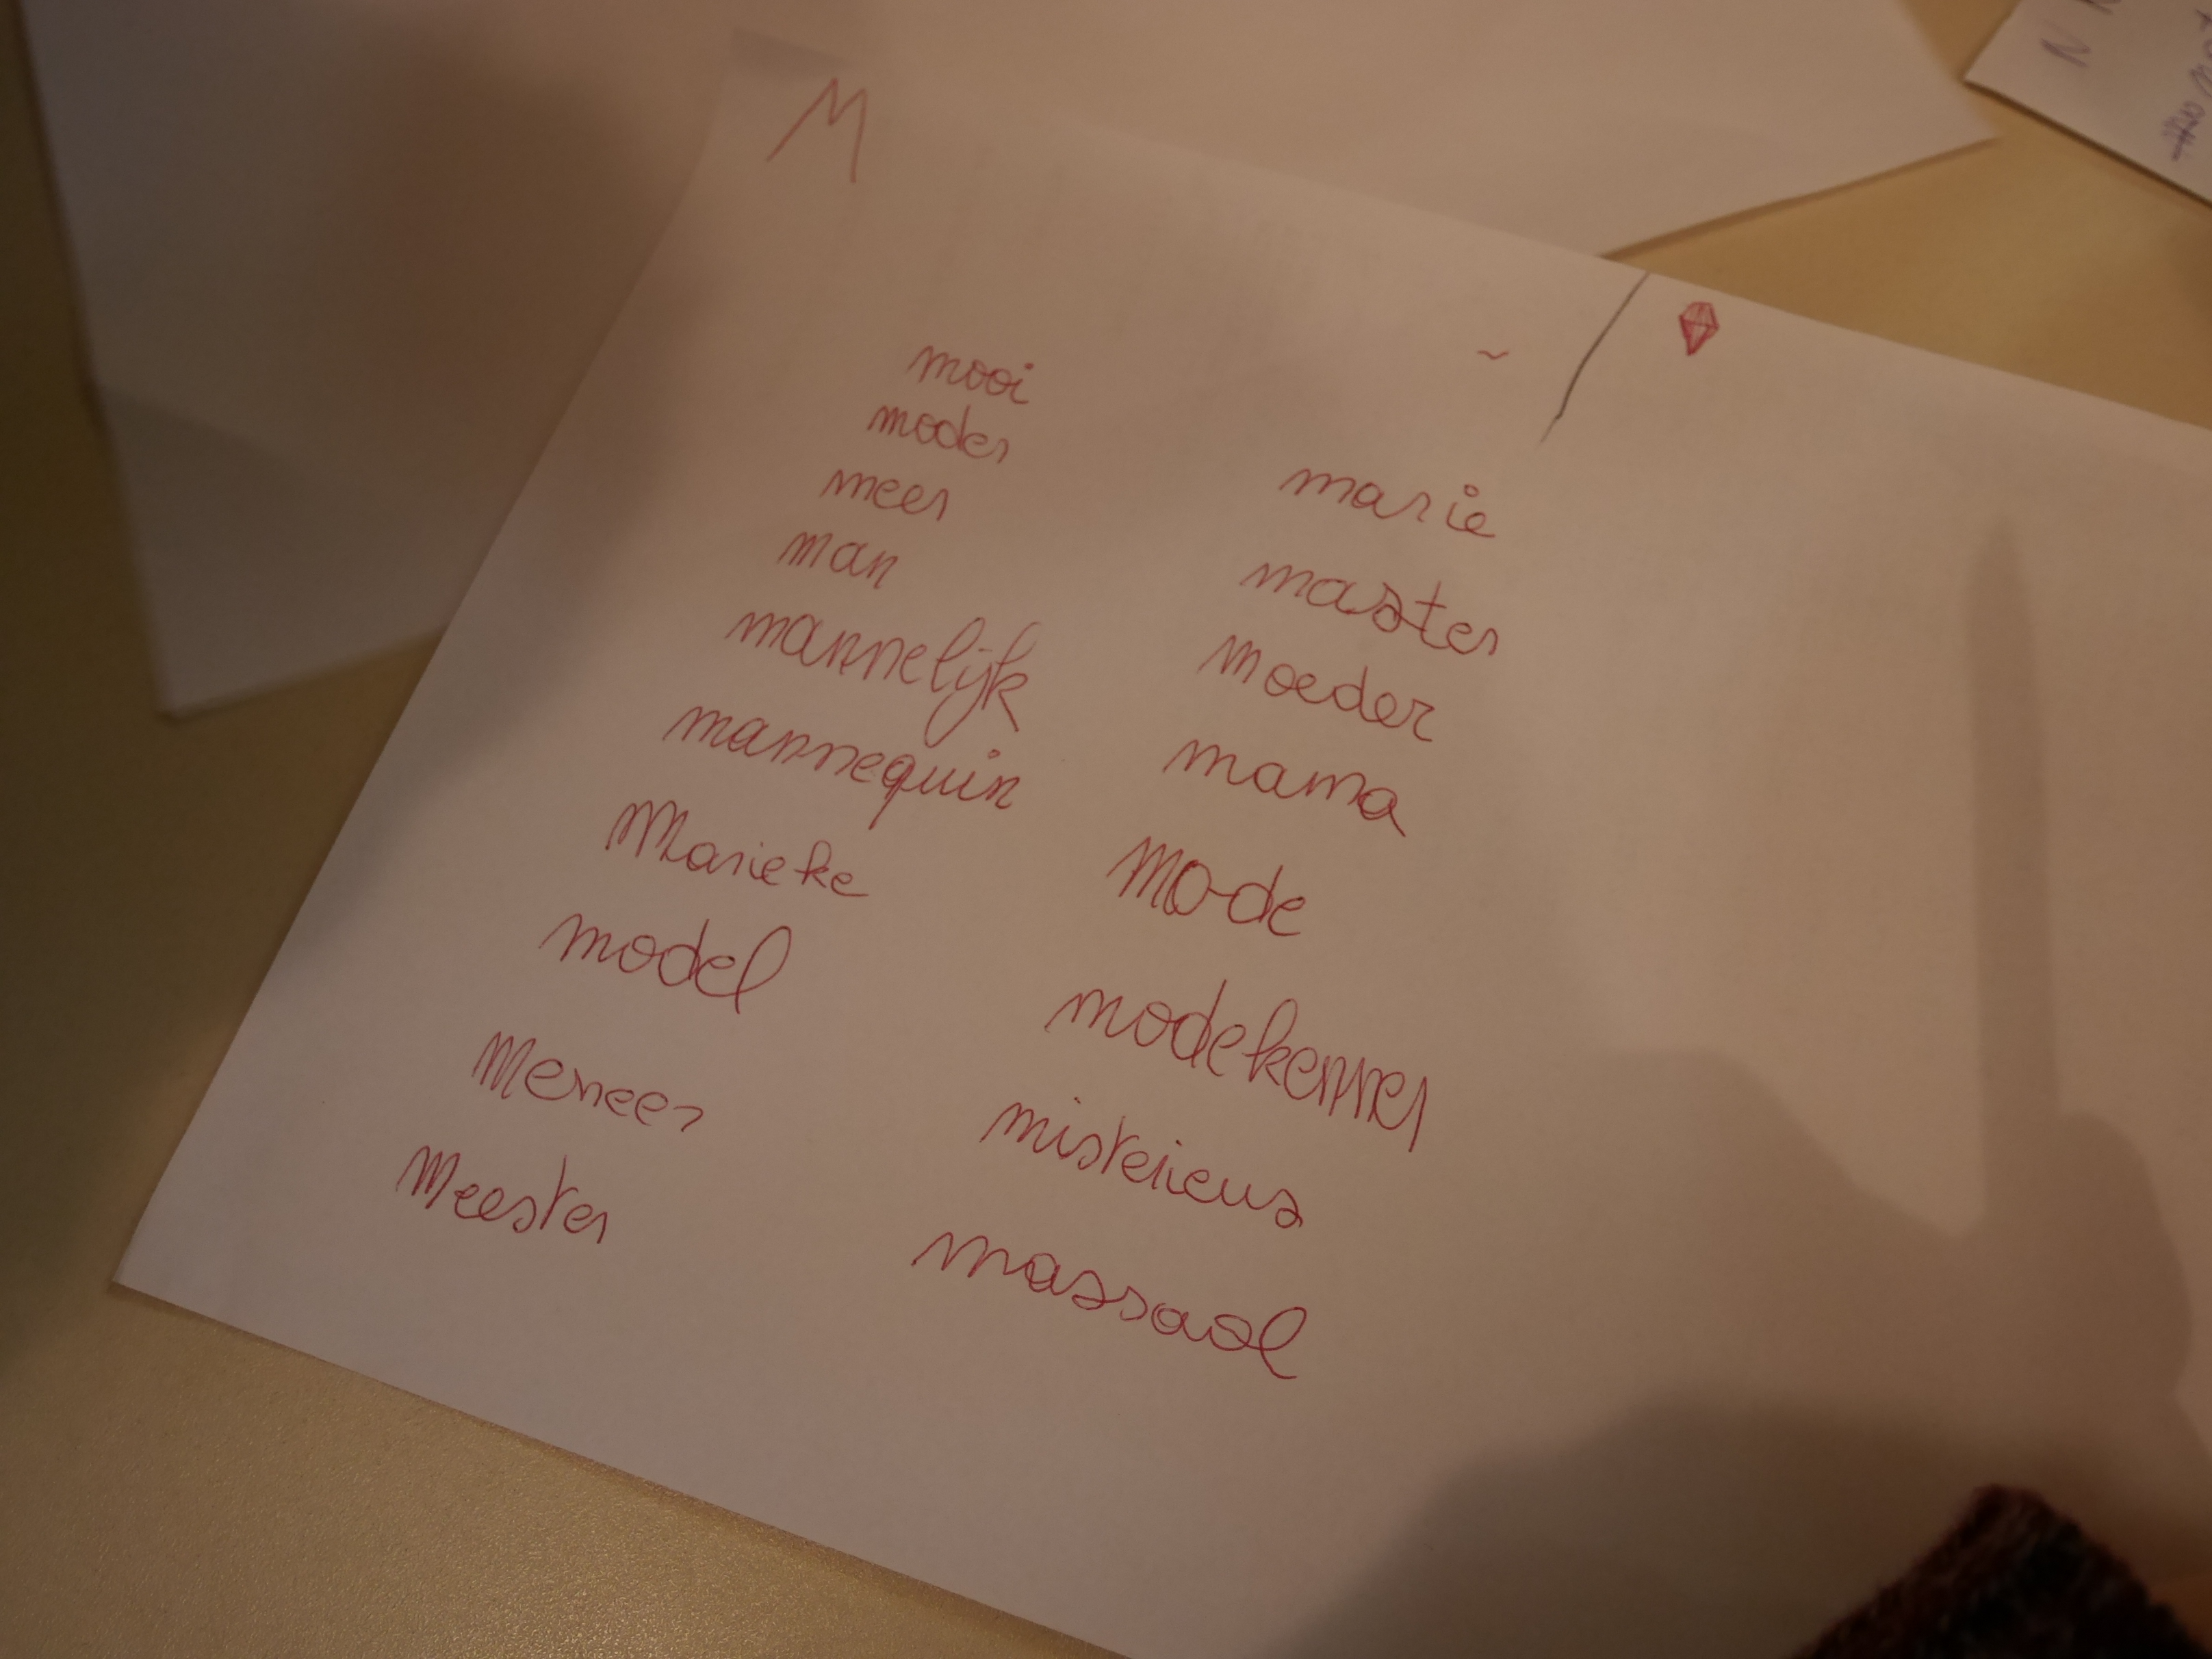 M
mooi
moder
meer
man
mannelijk
mannequin
Marieke
model
Meneer
Meester
marie
master
moeder
mama
Mo-de
modekenner
misterieus
massaal
N